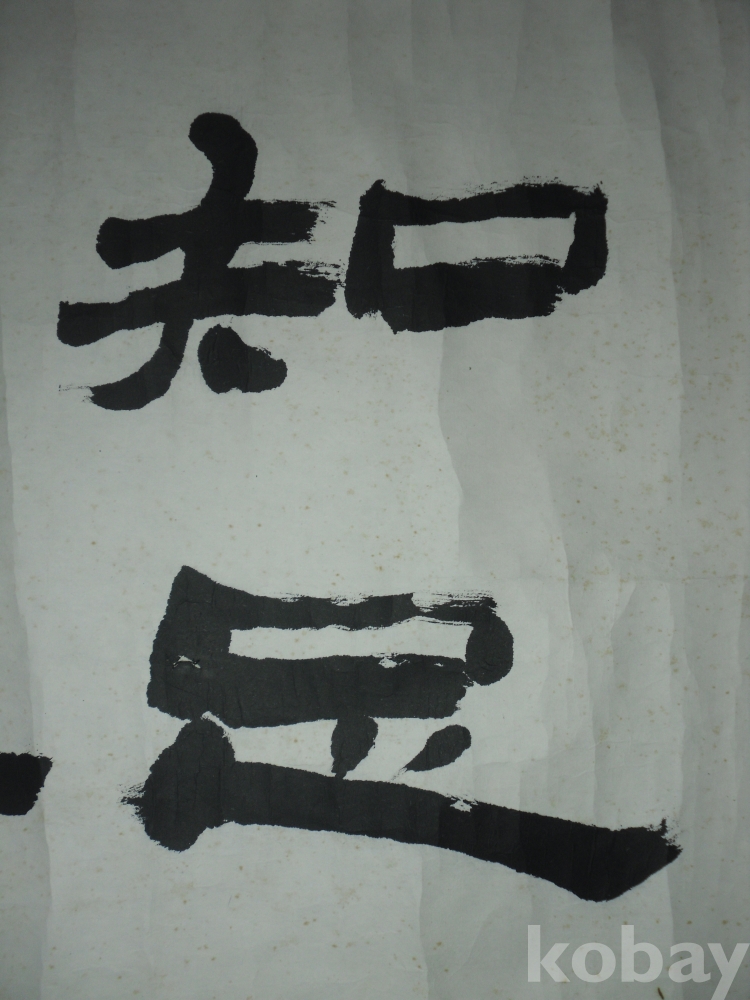 知
足
kobay